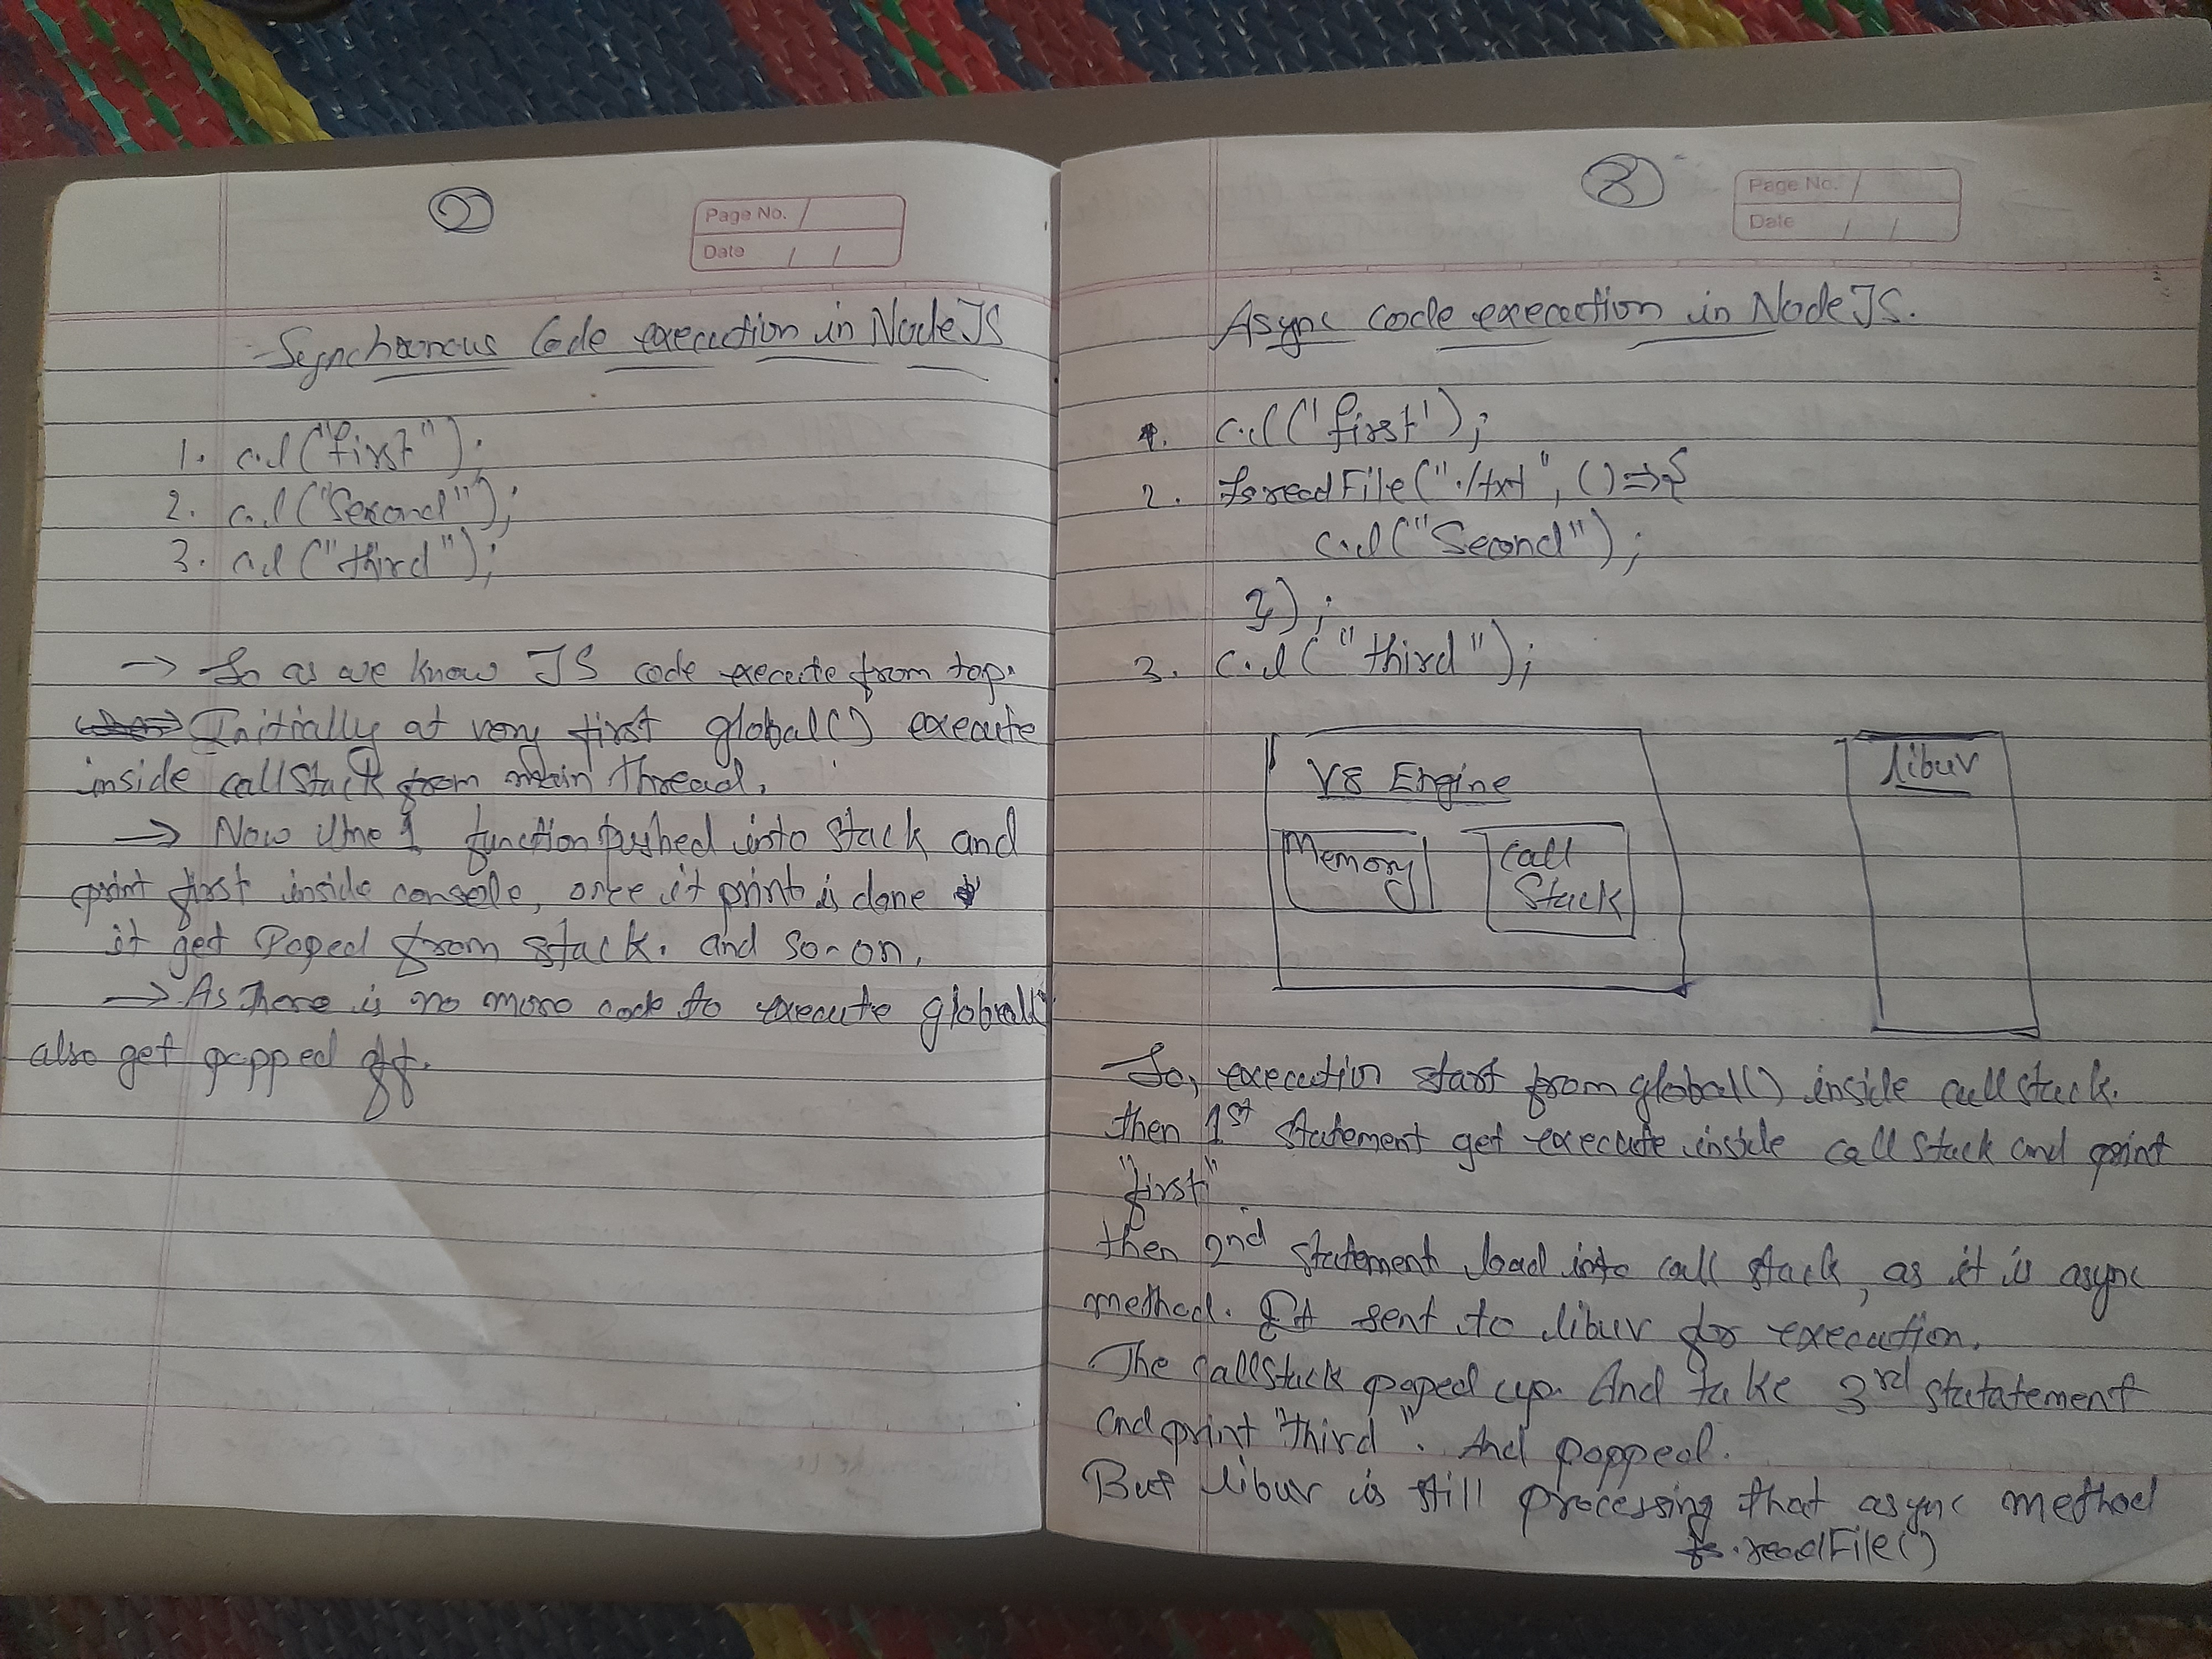 Page No.
Date
Synchronous Code execution in NodeJS
1. c.l("first");
2. c.l("Second");
3. c.l("third");
→ So as we know JS code execute from top.
Initially at very first global() execute
inside callStack from main thread.
→ Now line 1 function pushed into Stack and
print first inside console, once it prints is done
it get Poped from stack. and so-on.
→ As There is no more code to execute global()
also get popped off.
Page No.
Date
Async code execution in NodeJS.
1. c.l('first');
2. fs.readFile("./txt", () => {
c.l("Second");
});
3. c.l("third");
V8 Engine
Memory
Call
Stack
libuv
So, execution start from global() inside callstack.
then 1st statement get execute inside callstack and print
"first"
then 2nd statement load into call stack, as it is async
method. It sent to libuv for execution.
The callstack poped up. And take 3rd statatement
and print "third". And popped.
But libuv is still processing that async method
fs.readFile()